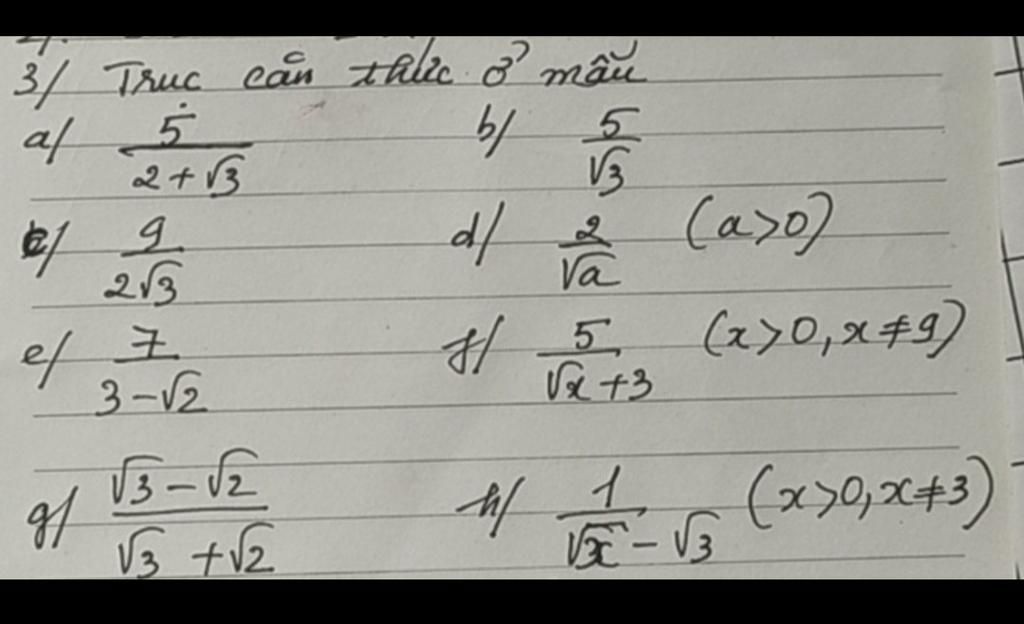 3/ Trục căn thức ở mẫu
a/ 5/(2+√3) b/ 5/√3
c/ 9/(2√3) d/ 2/√a (a>0)
e/ 7/(3-√2) f/ 5/(√x+3) (x>0, x≠9)
g/ (√3-√2)/(√3+√2) h/ 1/(√x-√3) (x>0, x≠3)